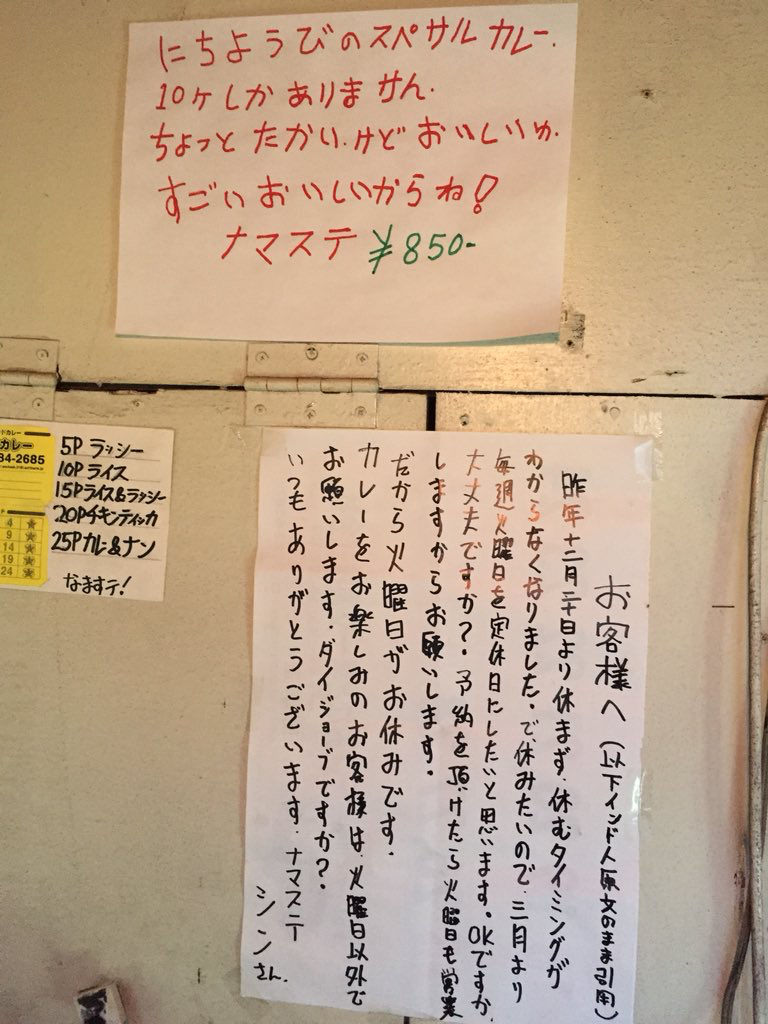 にちようびのスペサルカレー.
10ヶしかありません.
ちょっとたかい.けどおいしいゅ.
すごいおいしいからね!
ナマステ ¥850-
カレー
84-2685
4 ★
9 ★
14 ★
19 ★
24 ★
5P ラッシー
10P ライス
15Pライス&ラッシー
20Pチキンティッカ
25Pカレー&ナン
なますテ!
お客様へ(以下インド人原文のまま引用)
昨年十二月二十日より休まず.休むタイミングが
わからなくなりました.で.休みたいので.三月より
毎週火曜日を定休日にしたいと思います。OKですか.
大丈夫ですか?.予約を頂けたら火曜日も営業
しますからお願いします.
だから火曜日がお休みです.
カレーをお楽しみのお客様は.火曜日以外で
お願いします.ダイジョーブですか?
いつもありがとうございます.ナマステ
シンさん.